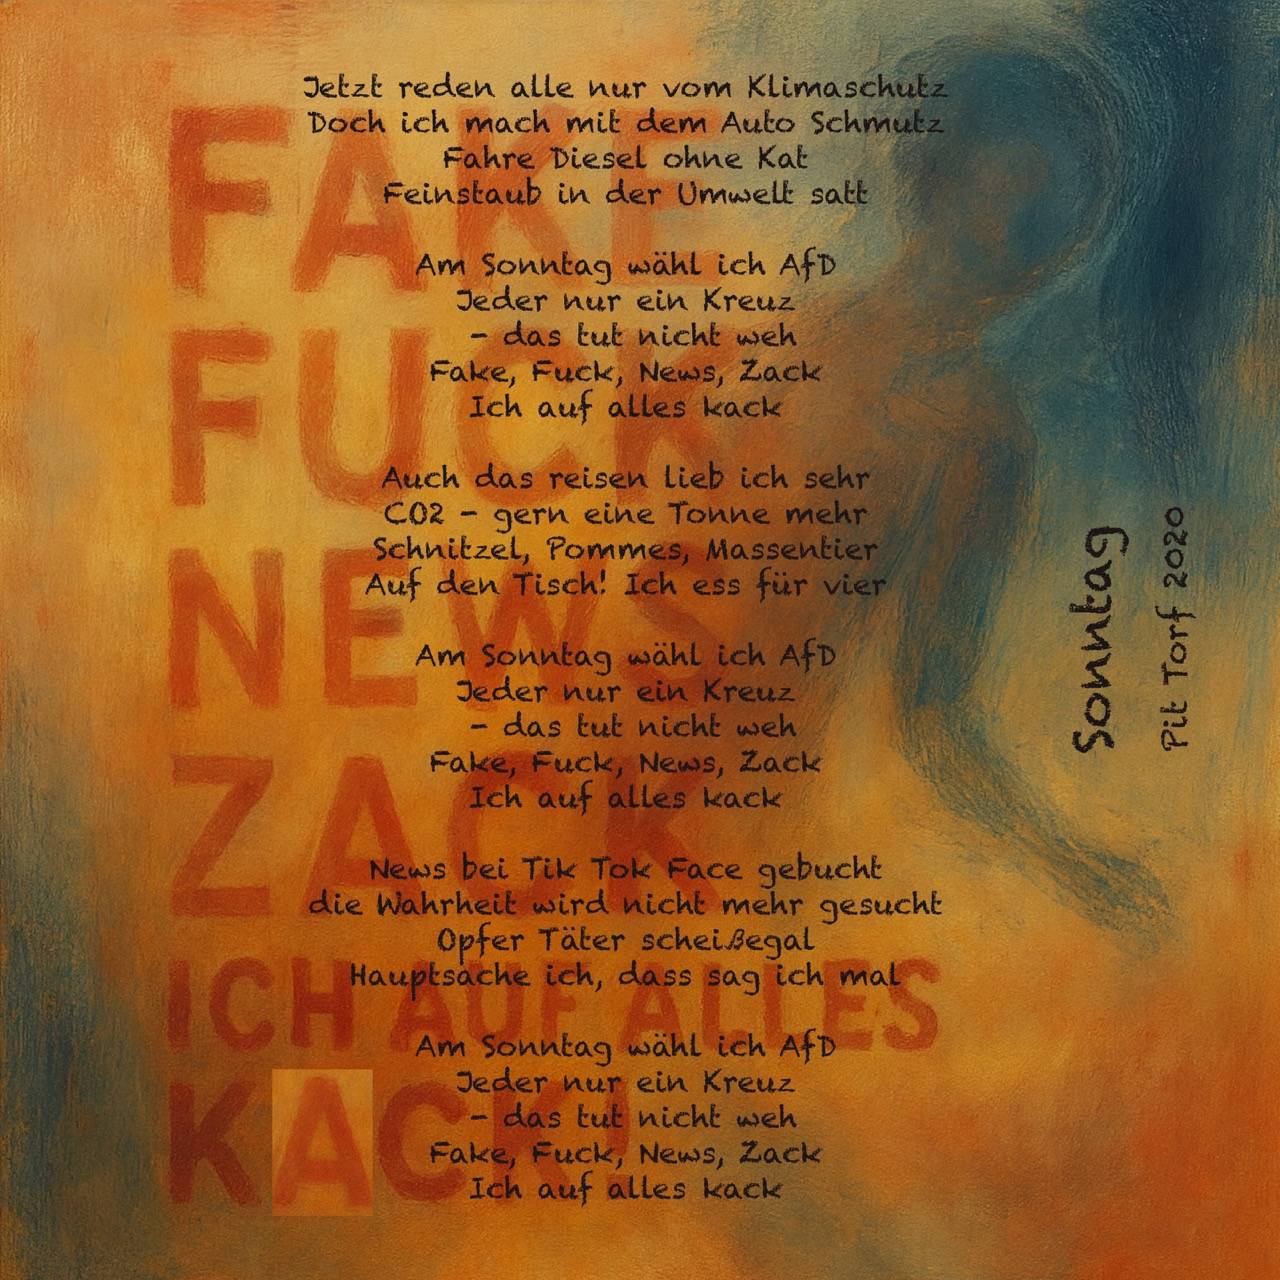 Jetzt reden alle nur vom Klimaschutz
Doch ich mach mit dem Auto Schmutz
Fahre Diesel ohne Kat
Feinstaub in der Umwelt satt
Am Sonntag wähl ich AfD
Jeder nur ein Kreuz
- das tut nicht weh
Fake, Fuck, News, Zack
Ich auf alles kack
Auch das reisen lieb ich sehr
CO2 - gern eine Tonne mehr
Schnitzel, Pommes, Massentier
Auf den Tisch! Ich ess für vier
Am Sonntag wähl ich AfD
Jeder nur ein Kreuz
- das tut nicht weh
Fake, Fuck, News, Zack
Ich auf alles kack
News bei Tik Tok Face gebucht
die Wahrheit wird nicht mehr gesucht
Opfer Täter scheißegal
Hauptsache ich, dass sag ich mal
Am Sonntag wähl ich AfD
Jeder nur ein Kreuz
- das tut nicht weh
Fake, Fuck, News, Zack
Ich auf alles kack
Sonntag
Pit Torf 2020
FAKE
FUCK
NEWS
ZACK
ICH AUF ALLES
KACK!